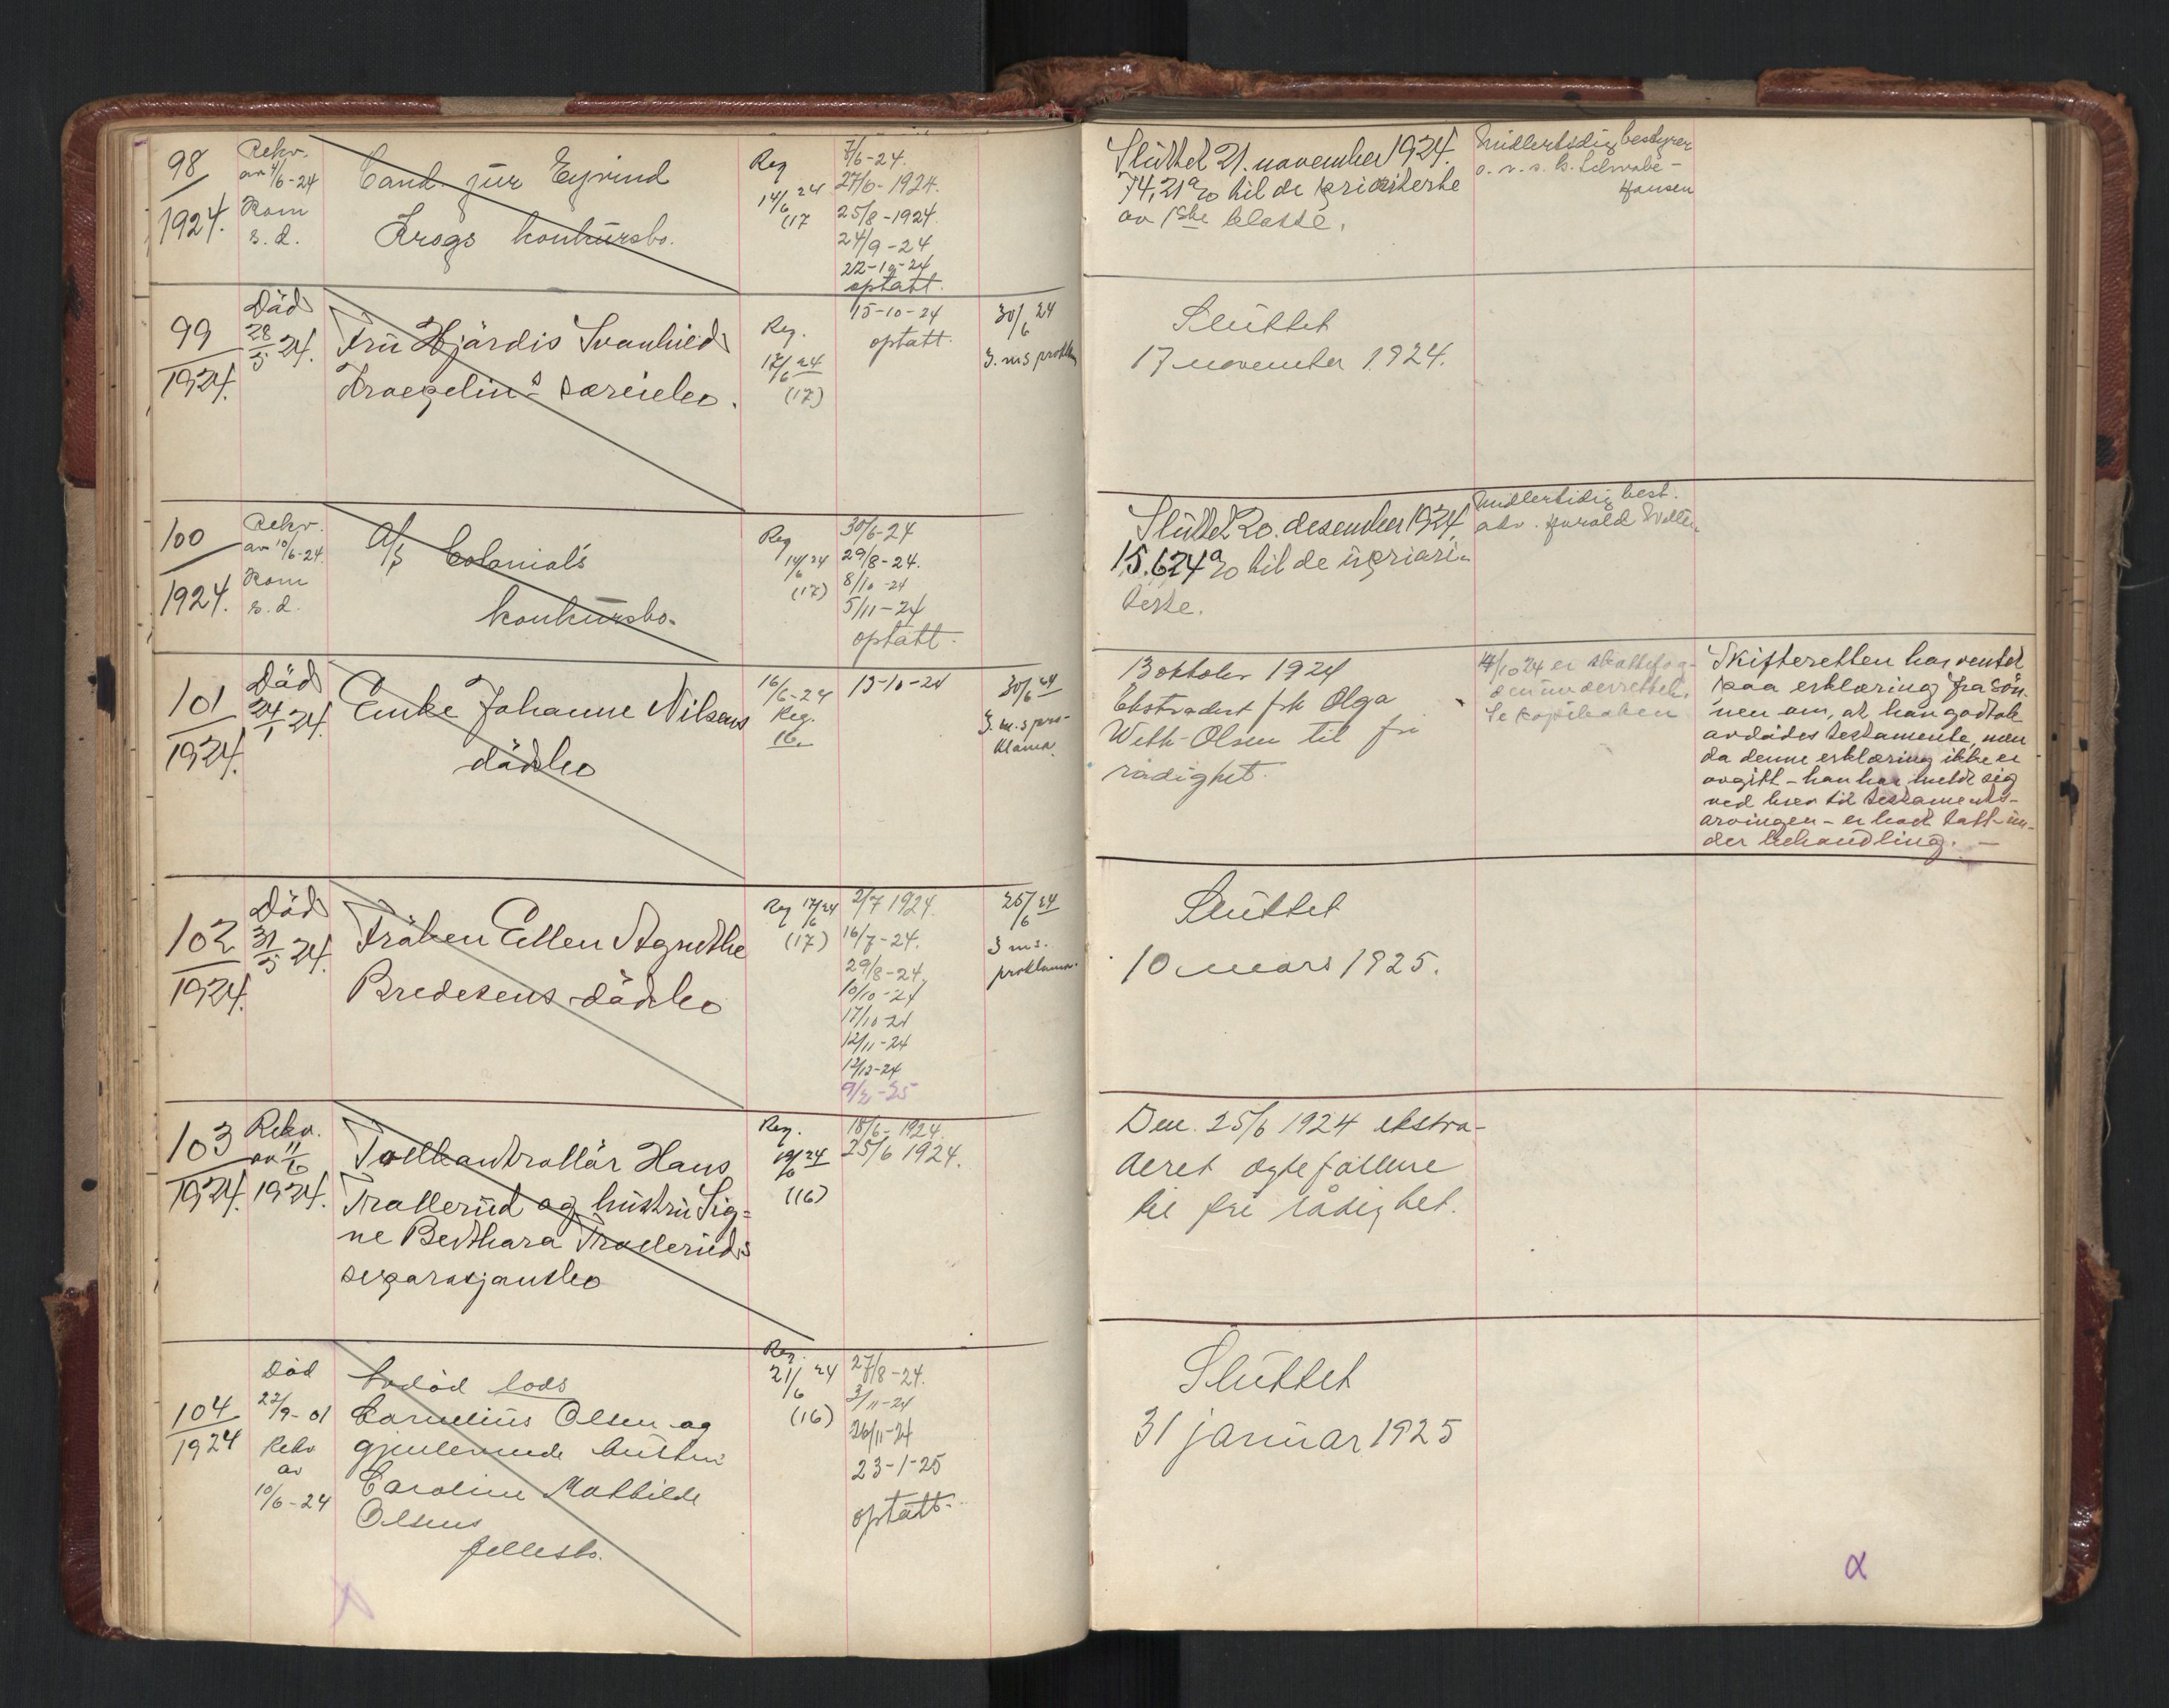 98
1924.
Rekv.
av 4/6-24
Kom
s.d.
Cand. jur Eyvind
Krogs konkursbo.
Reg
14/6 24
(17
7/6-24.
27/6-1924.
25/8-1924.
24/9-24
22-10-24
optatt.
Sluttet 21. november 1924.
74,21% til de prioriterte
av 1ste klasse.
Midlertidig bestyrer
o.r.s. B. Schwabe-
Hansen
99
1924.
Död
28/5 24.
Fru Hjördis Svanhild
særeiebo.
Reg.
17/6 24
(17)
15-10-24
optatt.
30/6 24
3. m.s prokl.
Sluttet
17 november 1924.
100
1924.
Rekv.
av 10/6-24.
Kom
s.d.
A/S Colonial's
konkursbo.
Reg
14/6 24
(17)
30/6-24
29/8-24.
8/10-24
5/11-24
optatt.
Sluttet 20. desember 1924,
15.624% til de upriori-
terte.
Midlertidig best.
adv. Harald
101
1924.
Död
24/1 24.
Enke Johanne Nilsens
dödsbo
16/6-24
Reg.
16.
13-10-24
30/6 24
3. m.s pro-
klama.
13 oktober 1924
Ekstradert frk Olga
Weth-Olsen til fri
rådighet.
14/10 24 er skattefog-
den underrettet.
Se kopiboken
Skifteretten har ventet
paa erklæring fra sön-
nen om, at han godtok
avdödes testamente, men
da denne erklæring ikke er
avgitt - han har meldt sig
ved brev til testaments-
arvingen - er boet tatt un-
der behandling. -
102
1924.
Död
31/5 24.
Fröken Ellen Agnethe
Bredesens dödsbo
Reg 17/6 24
(17)
2/7 1924.
16/7-24.
29/8-24.
10/10-24
17/10-24
12/11-24
12/12-24
9/2-25
25/6 24
3 m.s.
proklama.
Sluttet
10 mars 1925.
103
1924.
Rekv.
av 11/6
1924.
Tollkontrollör Hans
Trollerud og hustru Sig=
ne Berthara Trolleruds
separasjonsbo
Reg.
19/6 24
(16)
18/6-1924.
25/6 1924.
Den 25/6 1924 ekstra-
deret ægtefællene
til fri rådighet.
104
1924
Död
22/9-01
Rekv
av
10/6-24
Avdöd lods
Cornelius Olsen og
gjenlevende hustru
Caroline Mathilde
Olsens
fellesbo.
Reg.
21/6 24
(16)
27/8-24.
3/11-24
26/11-24
23-1-25
optatt.
Sluttet
31 januar 1925
α